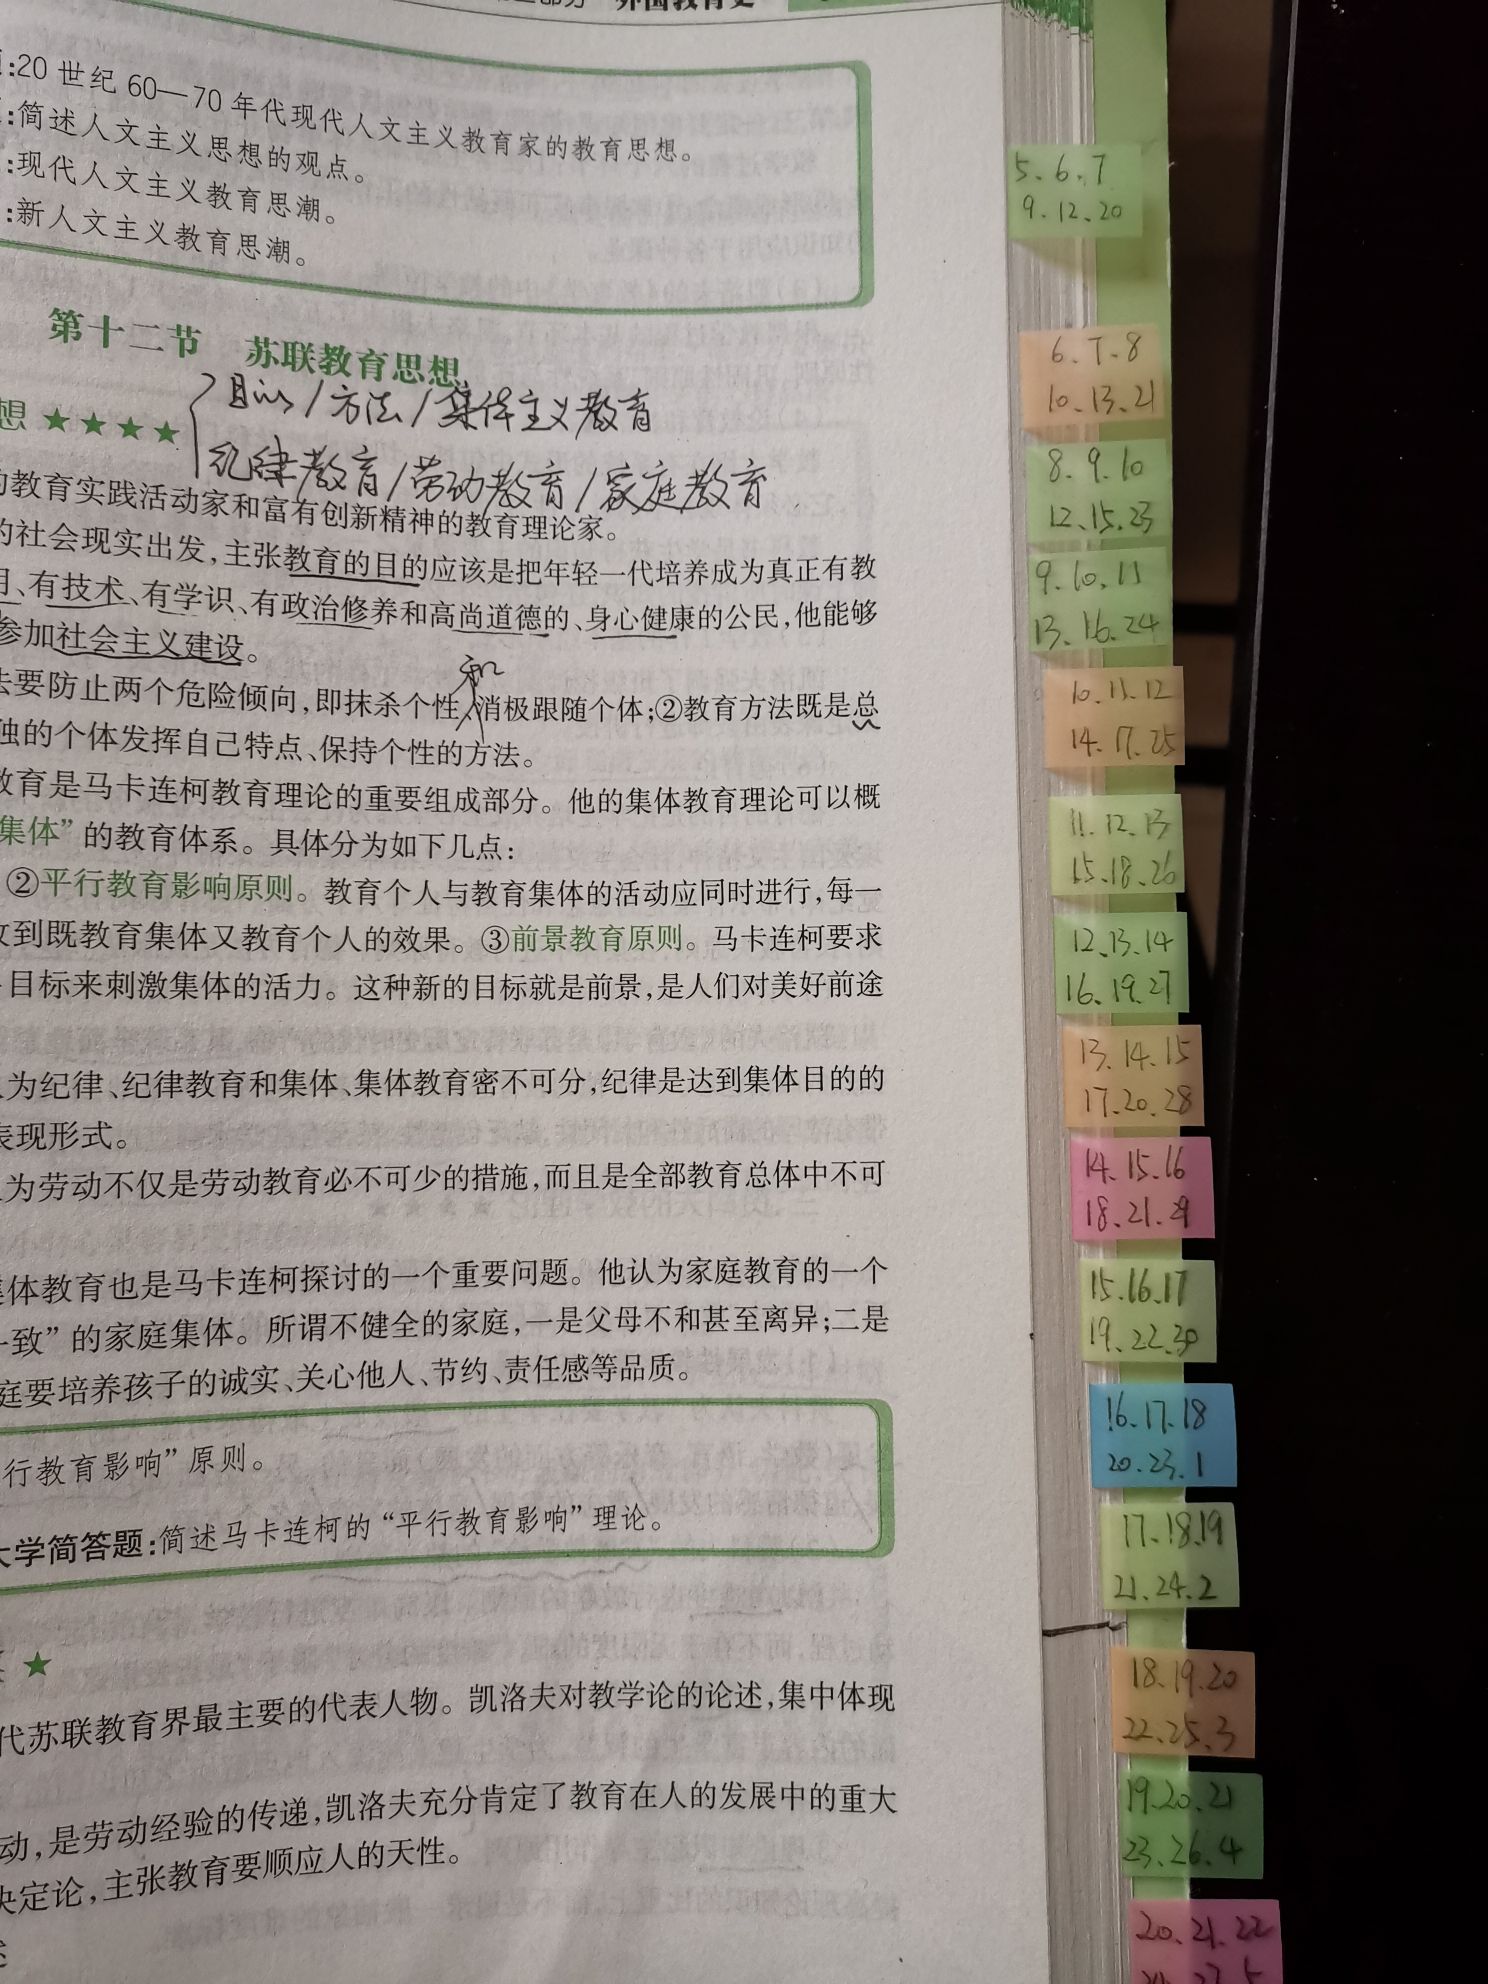 外国教育史
:20 世纪 60—70 年代现代人文主义教育家的教育思想。
:简述人文主义思想的观点。
:现代人文主义教育思潮。
:新人文主义教育思潮。
第十二节 苏联教育思想
想 ★★★★
目的/方法/集体主义教育
纪律教育/劳动教育/家庭教育
的教育实践活动家和富有创新精神的教育理论家。
的社会现实出发,主张教育的目的应该是把年轻一代培养成为真正有教
、有技术、有学识、有政治修养和高尚道德的、身心健康的公民,他能够
参加社会主义建设。
和
法要防止两个危险倾向,即抹杀个性、消极跟随个体;②教育方法既是总
独的个体发挥自己特点、保持个性的方法。
教育是马卡连柯教育理论的重要组成部分。他的集体教育理论可以概
集体”的教育体系。具体分为如下几点:
②平行教育影响原则。教育个人与教育集体的活动应同时进行,每一
收到既教育集体又教育个人的效果。③前景教育原则。马卡连柯要求
目标来刺激集体的活力。这种新的目标就是前景,是人们对美好前途
为纪律、纪律教育和集体、集体教育密不可分,纪律是达到集体目的的
表现形式。
为劳动不仅是劳动教育必不可少的措施,而且是全部教育总体中不可
集体教育也是马卡连柯探讨的一个重要问题。他认为家庭教育的一个
一致”的家庭集体。所谓不健全的家庭,一是父母不和甚至离异;二是
庭要培养孩子的诚实、关心他人、节约、责任感等品质。
行教育影响”原则。
大学简答题:简述马卡连柯的“平行教育影响”理论。
★
代苏联教育界最主要的代表人物。凯洛夫对教学论的论述,集中体现
动,是劳动经验的传递,凯洛夫充分肯定了教育在人的发展中的重大
决定论,主张教育要顺应人的天性。
5.6.7
9.12.20
6.7.8
10.13.21
8.9.10
12.15.23
9.10.11
13.16.24
10.11.12
14.17.25
11.12.13
15.18.26
12.13.14
16.19.27
13.14.15
17.20.28
14.15.16
18.21.29
15.16.17
19.22.30
16.17.18
20.23.1
17.18.19
21.24.2
18.19.20
22.25.3
19.20.21
23.26.4
20.21.22